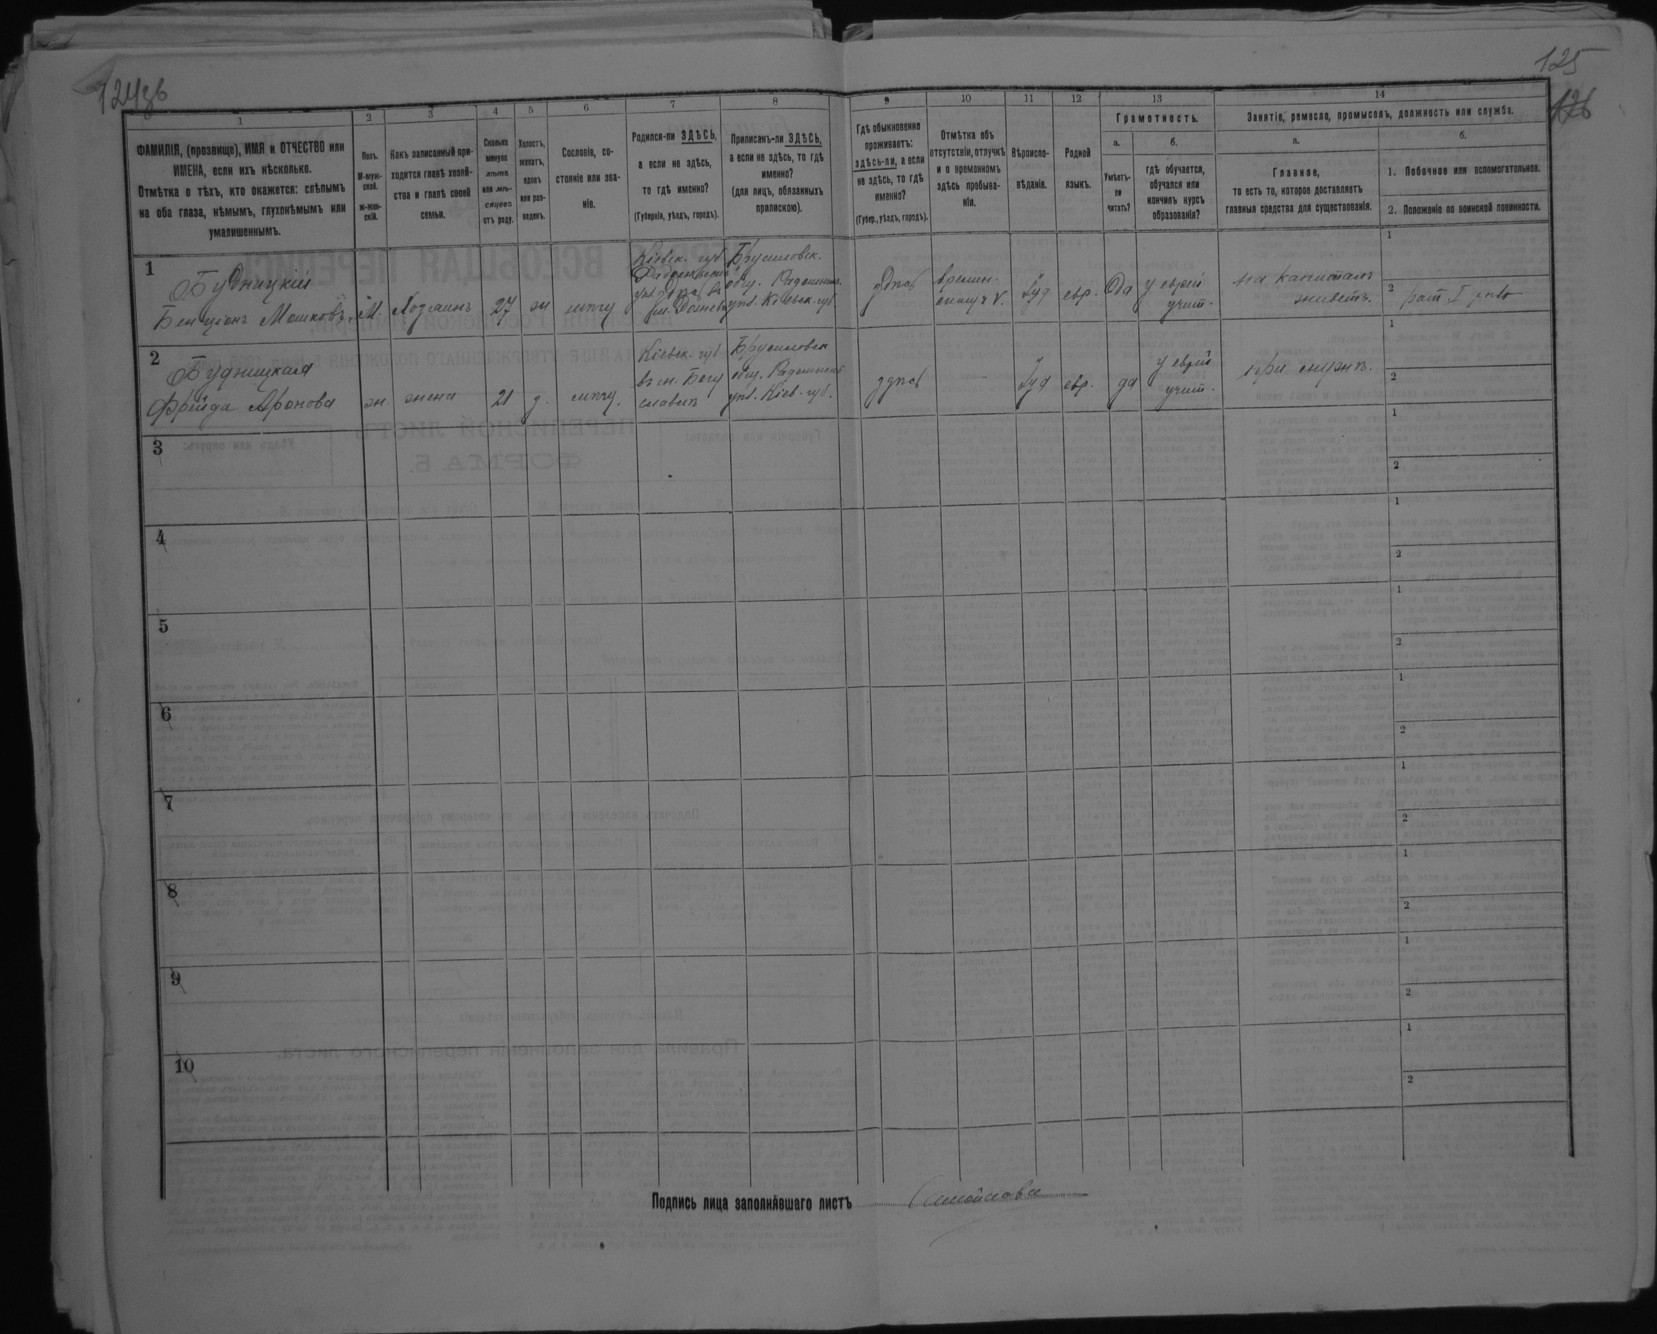 124 об
125
126
1
2
3
4
5
6
7
8
9
10
11
12
13
14
ФАМИЛІЯ, (прозвище), ИМЯ и ОТЧЕСТВО или
ИМЕНА, если ихъ нѣсколько.
Отмѣтка о тѣхъ, кто окажется: слѣпымъ
на оба глаза, нѣмымъ, глухонѣмымъ или
умалишеннымъ.
Полъ.
М-муж-
ской.
ж-жен-
скій.
Какъ записанный при-
ходится главѣ хозяй-
ства и главѣ своей
семьи.
Сколько
минуло
лѣтъ
или мѣ-
сяцевъ
отъ роду.
Холостъ,
женатъ,
вдовъ
или раз-
веденъ.
Сословіе, со-
стояніе или зва-
ніе.
Родился-ли ЗДѢСЬ,
а если не здѣсь,
то гдѣ именно?
(Губернія, уѣздъ, городъ).
Приписанъ-ли ЗДѢСЬ,
а если не здѣсь, то гдѣ
именно?
(для лицъ, обязанныхъ
припискою).
Гдѣ обыкновенно
проживаетъ:
здѣсь-ли, а если
не здѣсь, то гдѣ
именно?
(Губер., уѣздъ, городъ).
Отмѣтка объ
отсутствіи, отлучкѣ
и о временномъ
здѣсь пребыва-
ніи.
Вѣроиспо-
вѣданіе.
Родной
языкъ.
Грамотность.
а.
Умѣетъ-
ли
читать?
б.
гдѣ обучается,
обучался или
кончилъ курсъ
образованія?
Занятіе, ремесло, промыселъ, должность или служба.
а.
Главное,
то есть то, которое доставляетъ
главныя средства для существованія.
б.
1. Побочное или вспомогательное.
2. Положеніе по воинской повинности.
1
Будницкій
Бенціонъ Мошковъ
М.
Хозяинъ
27
ж
мѣщ
Кіевск. губ
Брусиловск.
общ. Радомысл.
уѣзд. Кіевск. губ
здѣсь
времен-
Іуд
евр.
Да
у еврей
учит.
на капиталъ
живетъ.
1
2
2
Будницкая
Фрейда Аронова
ж.
жена
21
з.
мѣщ.
Кіевск. губ
Брусиловск
общ. Радомысл
уѣзд. Кіев. губ.
здѣсь
—
Іуд
евр.
да
у еврей
учит.
при мужѣ.
1
2
3
1
2
4
1
2
5
1
2
6
1
2
7
1
2
8
1
2
9
1
2
10
1
2
Подпись лица заполнявшаго листъ